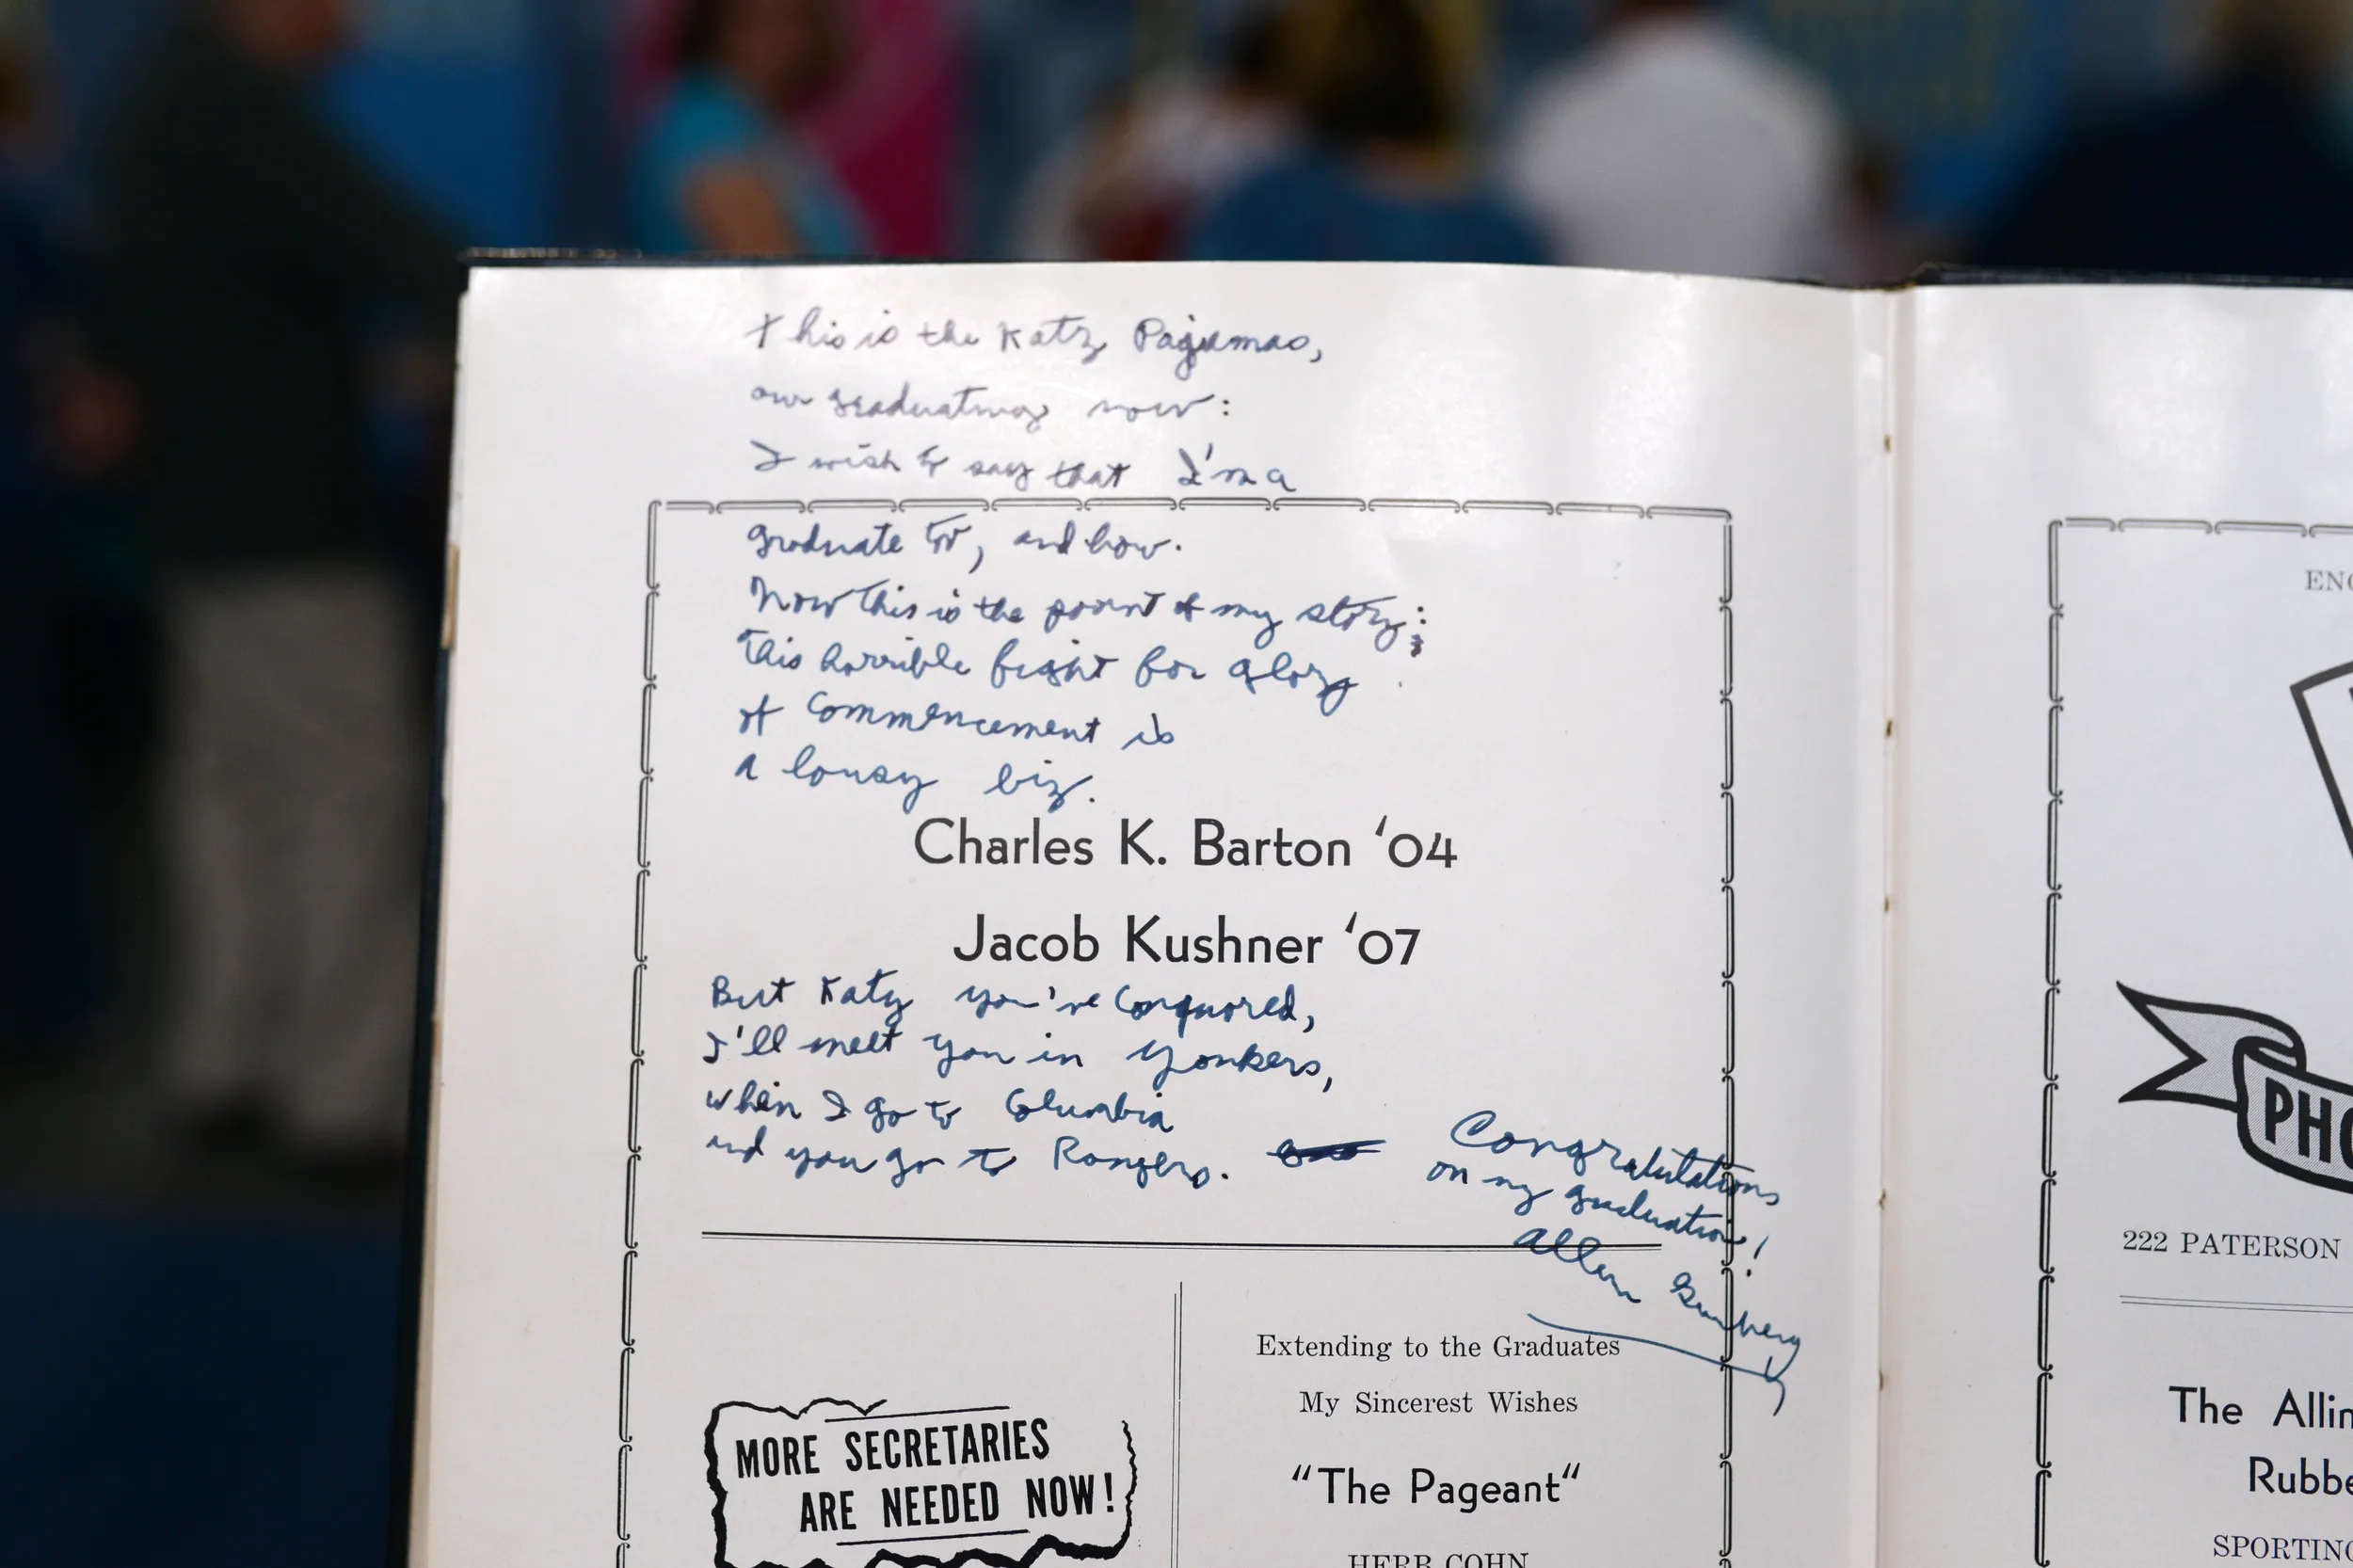 This is the Katz Pajamas,
our graduating now:
I wish to say that I'm a
graduate too, and how.
Now this is the point of my story:
this horrible fight for glory
of Commencement is
a lousy biz.
Charles K. Barton '04
Jacob Kushner '07
But Katz you've Conquored,
I'll meet you in Yonkers,
when I go to Columbia
and you go to Rongers.
Congratulations
on my graduation!
Allen Ginsberg
MORE SECRETARIES
ARE NEEDED NOW!
Extending to the Graduates
My Sincerest Wishes
"The Pageant"
HERB COHN
222 PATERSON
The
SPORTING